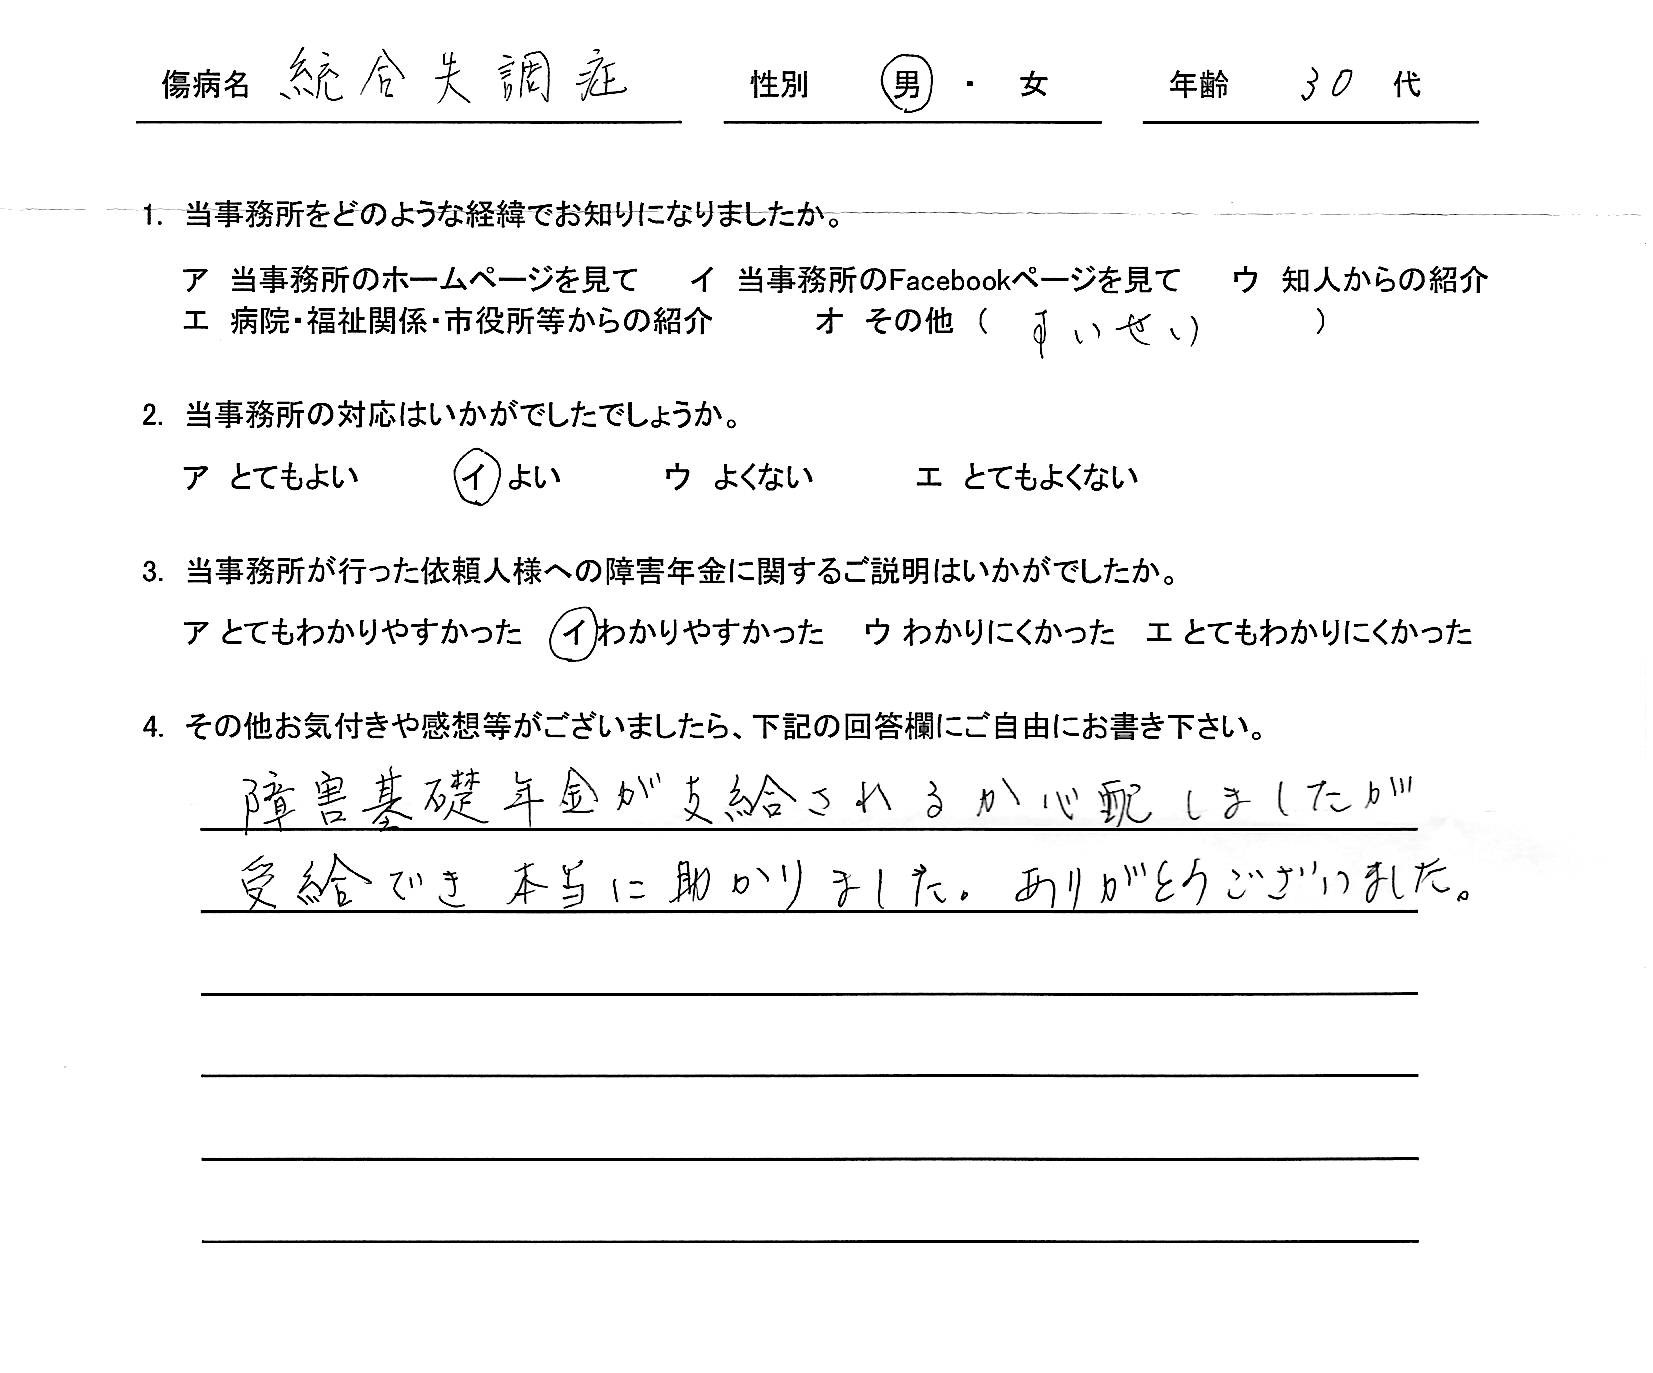 傷病名 統合失調症 性別 男 ・ 女 年齢 30 代
1. 当事務所をどのような経緯でお知りになりましたか。
ア 当事務所のホームページを見て イ 当事務所のFacebookページを見て ウ 知人からの紹介
エ 病院・福祉関係・市役所等からの紹介 オ その他 ( すいせい )
2. 当事務所の対応はいかがでしたでしょうか。
ア とてもよい イ よい ウ よくない エ とてもよくない
3. 当事務所が行った依頼人様への障害年金に関するご説明はいかがでしたか。
ア とてもわかりやすかった イ わかりやすかった ウ わかりにくかった エ とてもわかりにくかった
4. その他お気付きや感想等がございましたら、下記の回答欄にご自由にお書き下さい。
障害基礎年金が支給されるか心配しましたが
受給でき本当に助かりました。ありがとうございました。